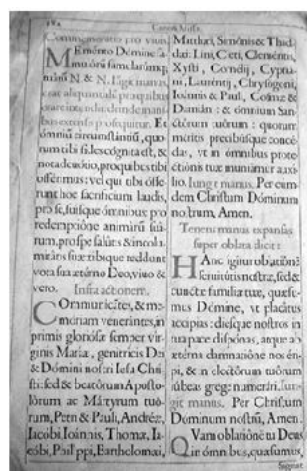 Canon Missæ.
Commemoratio pro viuis.
MEménto Dómine fa-
mulórũ famularúmq;
N & N. Iungit manus,
orat aliquantulum pro quibus
orare inténdit, deinde mani-
bus extensis prosequitur. Et
ómniũ circumstántiũ, quo-
rum tibi fides cógnita est, &
nota deuótio, pro quibus tibi
offérimus: vel qui tibi óffe-
runt hoc sacrifícium laudis,
pro se, suísque ómnibus pro
redemptióne animárũ suá-
rum, pro spe salútis & incolu-
mitátis suæ tibíque reddunt
vota sua ætérno Deo, viuo &
vero.
Infra actionem.
COmmunicátes, & me-
móriam venerántes, in
primis gloriósæ semper vír-
ginis Mariæ, genitrícis Dei
& Dómini nostri Iesu Chri-
sti: sed & beatórum Aposto-
lórum ac Mártyrum tuó-
rum, Petri & Pauli, Andréæ,
Iacóbi, Ioánnis, Thomæ, Ia-
cóbi, Philíppi, Bartholomæi,
Matthæi, Simónis & Thad-
dæi: Lini, Cleti, Cleméntis,
Xysti, Cornélij, Cypriá-
ni, Lauréntij, Chrysógoni,
Ioánnis & Pauli, Cosmæ &
Damiáni: & ómnium San-
ctórum tuórum: quorum
méritis precibúsque concé-
das, vt in ómnibus prote-
ctiónis tuæ muniámur auxí-
lio. Iungit manus. Per eum-
dem Christum Dóminum
nostrum, Amen.
Tenens manus expansas
super oblata dicit:
HAnc ígitur oblatiónẽ
seruitútis nostræ, sed &
cunctæ famíliæ tuæ, quæsu-
mus Dómine, vt placátus
accípias: diésque nostros in
tua pace dispónas, atque ab
ætérna damnatióne nos éri-
pi, & in electórum tuórum
iúbeas grege numerári. Iun-
git manus. Per Christum
Dóminum nostrũ, Amen.
QVam oblatiónẽ tu Deus
in ómnibus, quǽsumus